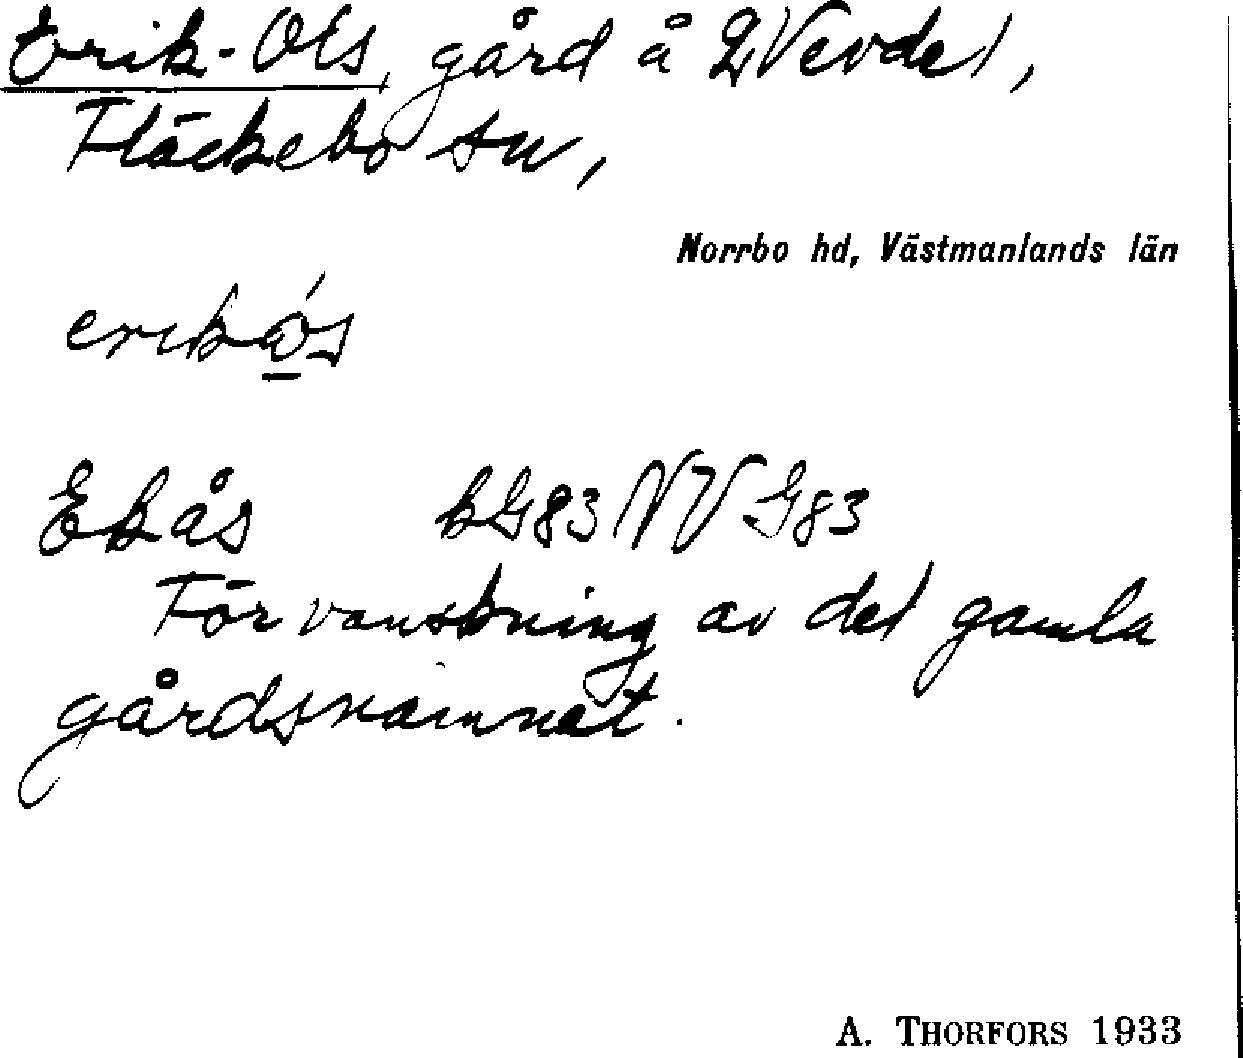 Erik-Ols, gård å 2 Vevdel,
Fläckebo sn,
Norrbo hd, Västmanlands län
Ekås kG83 NV G83
Förvanskning av det gamla
gårdsnamnet.
A. THORFORS 1933